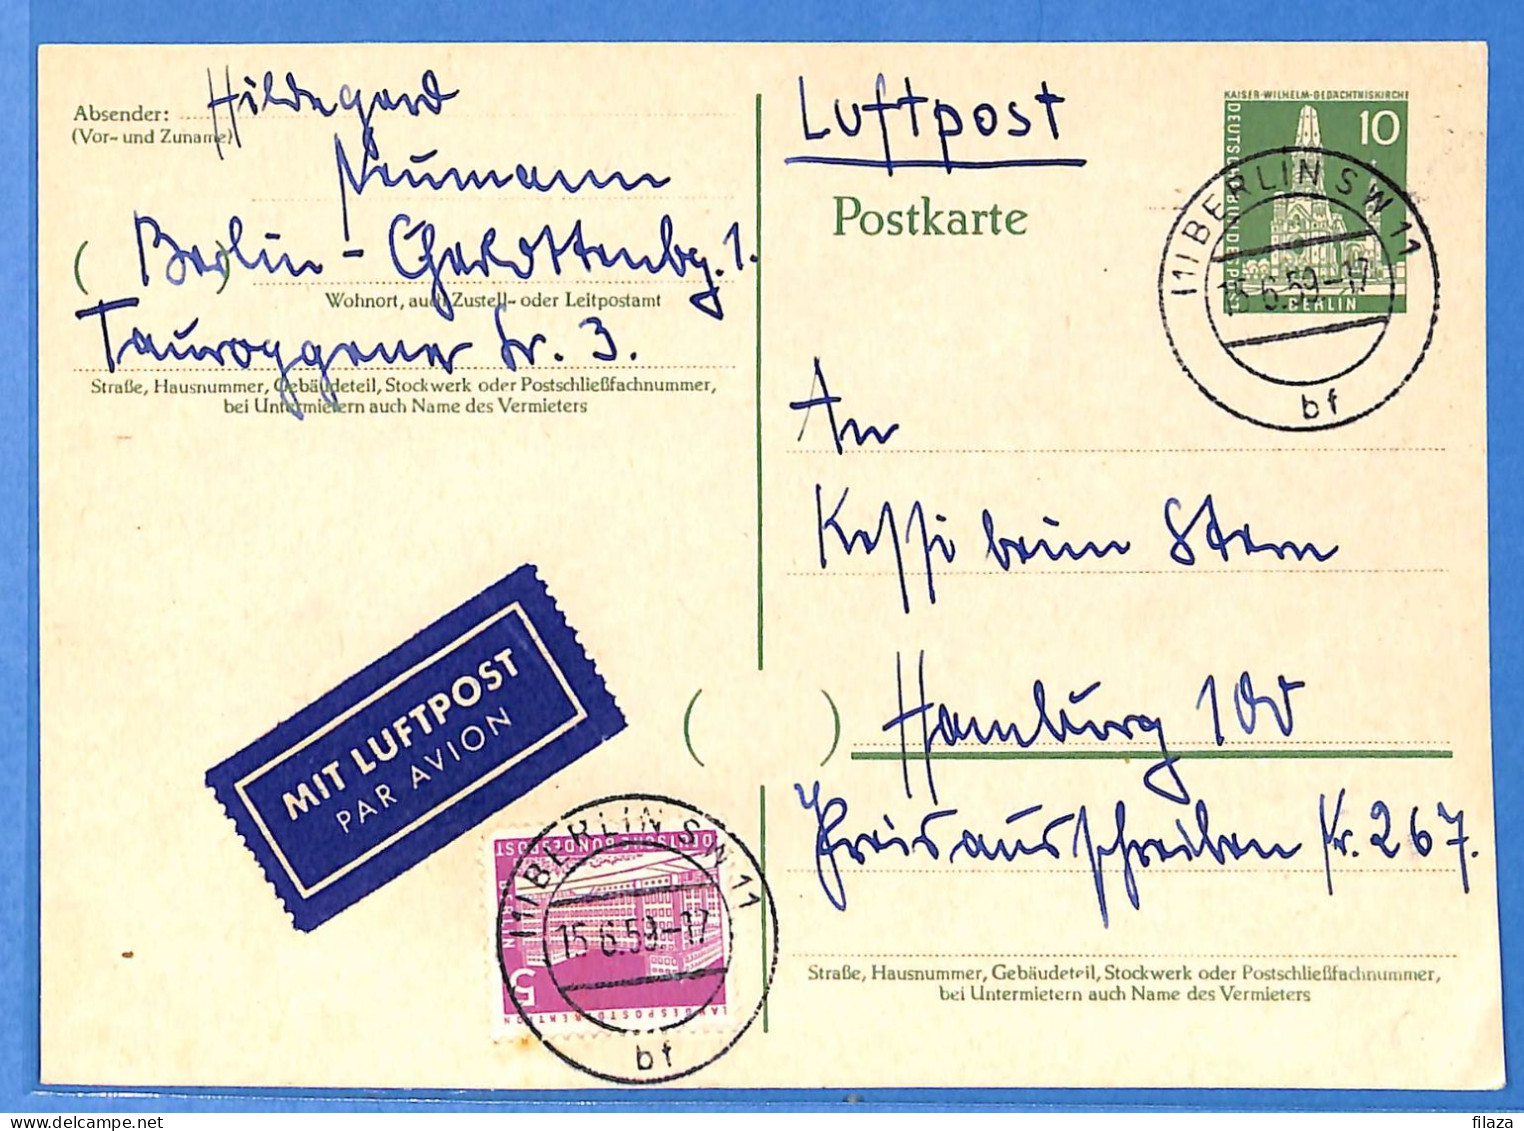 Absender:
(Vor- und Zuname)
Hildegard
Neumann
Berlin - Charlottenbg. 1.
Wohnort, auch Zustell- oder Leitpostamt
Tauroggener Str. 3.
Straße, Hausnummer, Gebäudeteil, Stockwerk oder Postschließfachnummer,
bei Untermietern auch Name des Vermieters
Luftpost
Postkarte
KAISER-WILHELM-GEDÄCHTNISKIRCHE
10
DEUTSCHE BUNDESPOST
BERLIN
(1) BERLIN SW 11
15.6.59.-17
bf
An
Kessi beim Stern
Hamburg 100
Preisausschreiben Nr. 267.
Straße, Hausnummer, Gebäudeteil, Stockwerk oder Postschließfachnummer,
bei Untermietern auch Name des Vermieters
MIT LUFTPOST
PAR AVION
DEUTSCHE BUNDESPOST
BERLIN
5
LANDESPOSTDIREKTION
(1) BERLIN SW 11
15.6.59.-17
bf
filaza